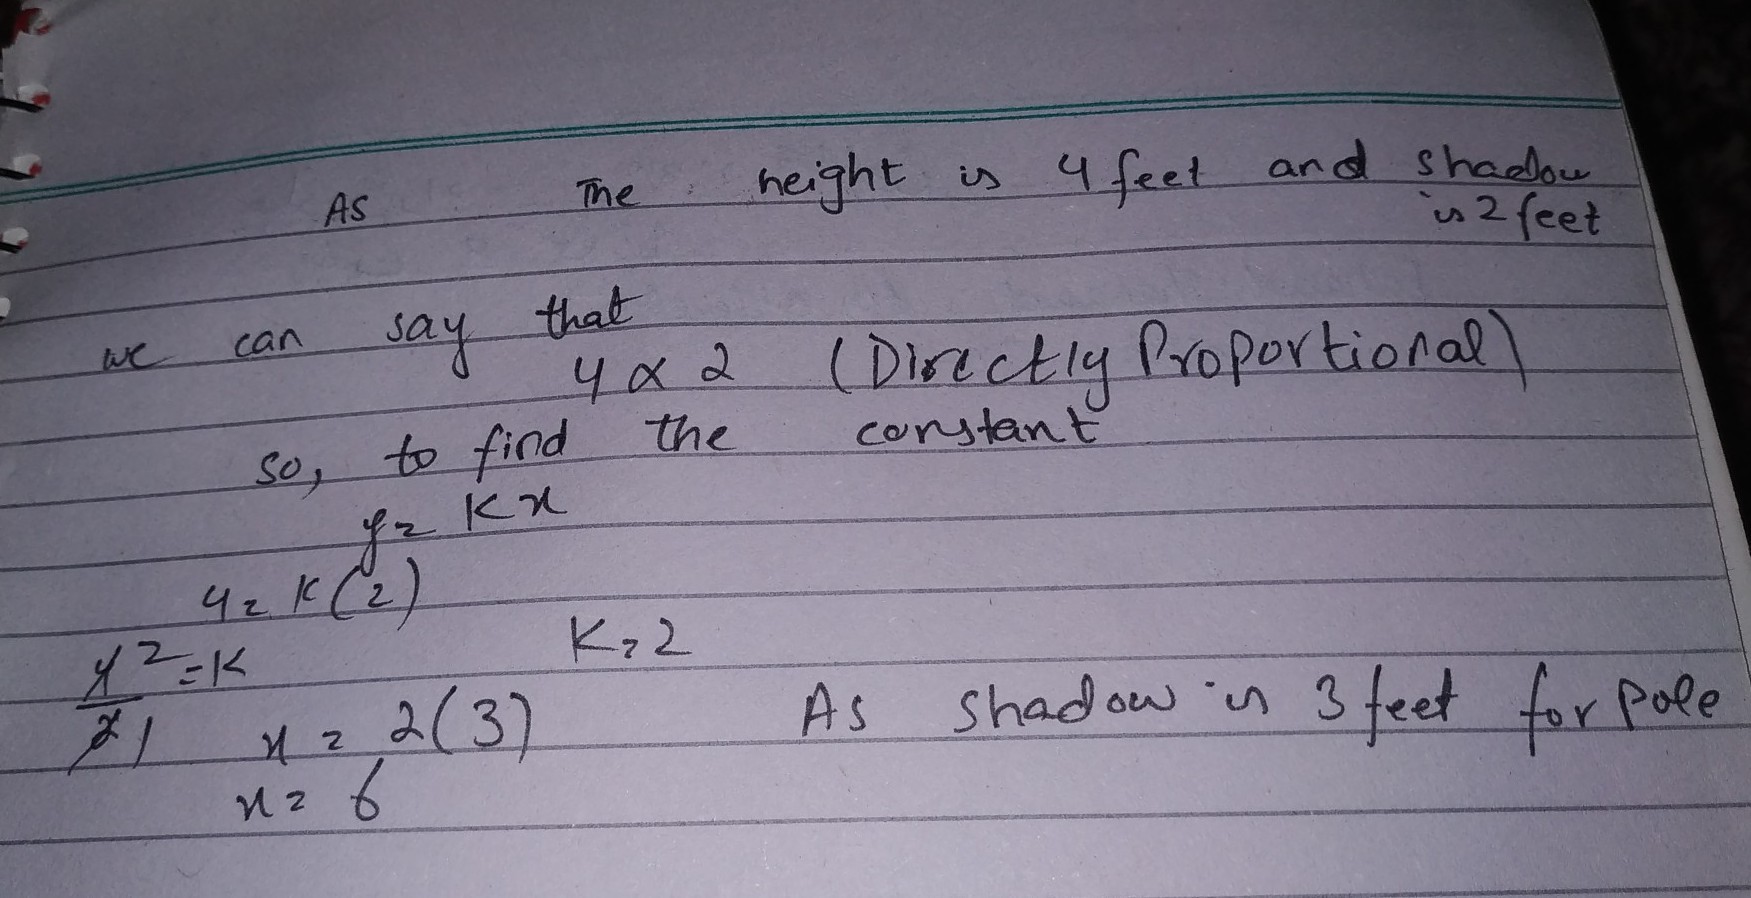 As The height is 4 feet and shadow
is 2 feet
we can say that
4 ∝ 2 (Directly Proportional)
so, to find the constant
y = Kx
4 = K(2)
4 2 = K K = 2
2 1 x = 2(3) As shadow is 3 feet for pole
x = 6